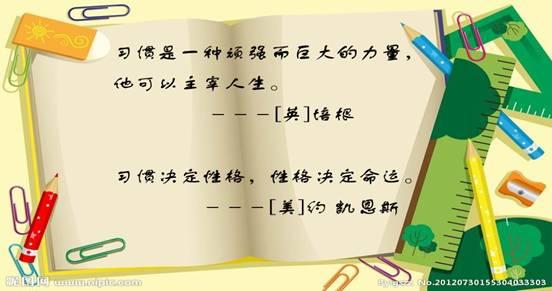 习惯是一种顽强而巨大的力量，
他可以主宰人生。
---[英]培根
习惯决定性格，性格决定命运。
---[美]约 凯恩斯
昵图网 www.nipic.com
No.20120730155304033303